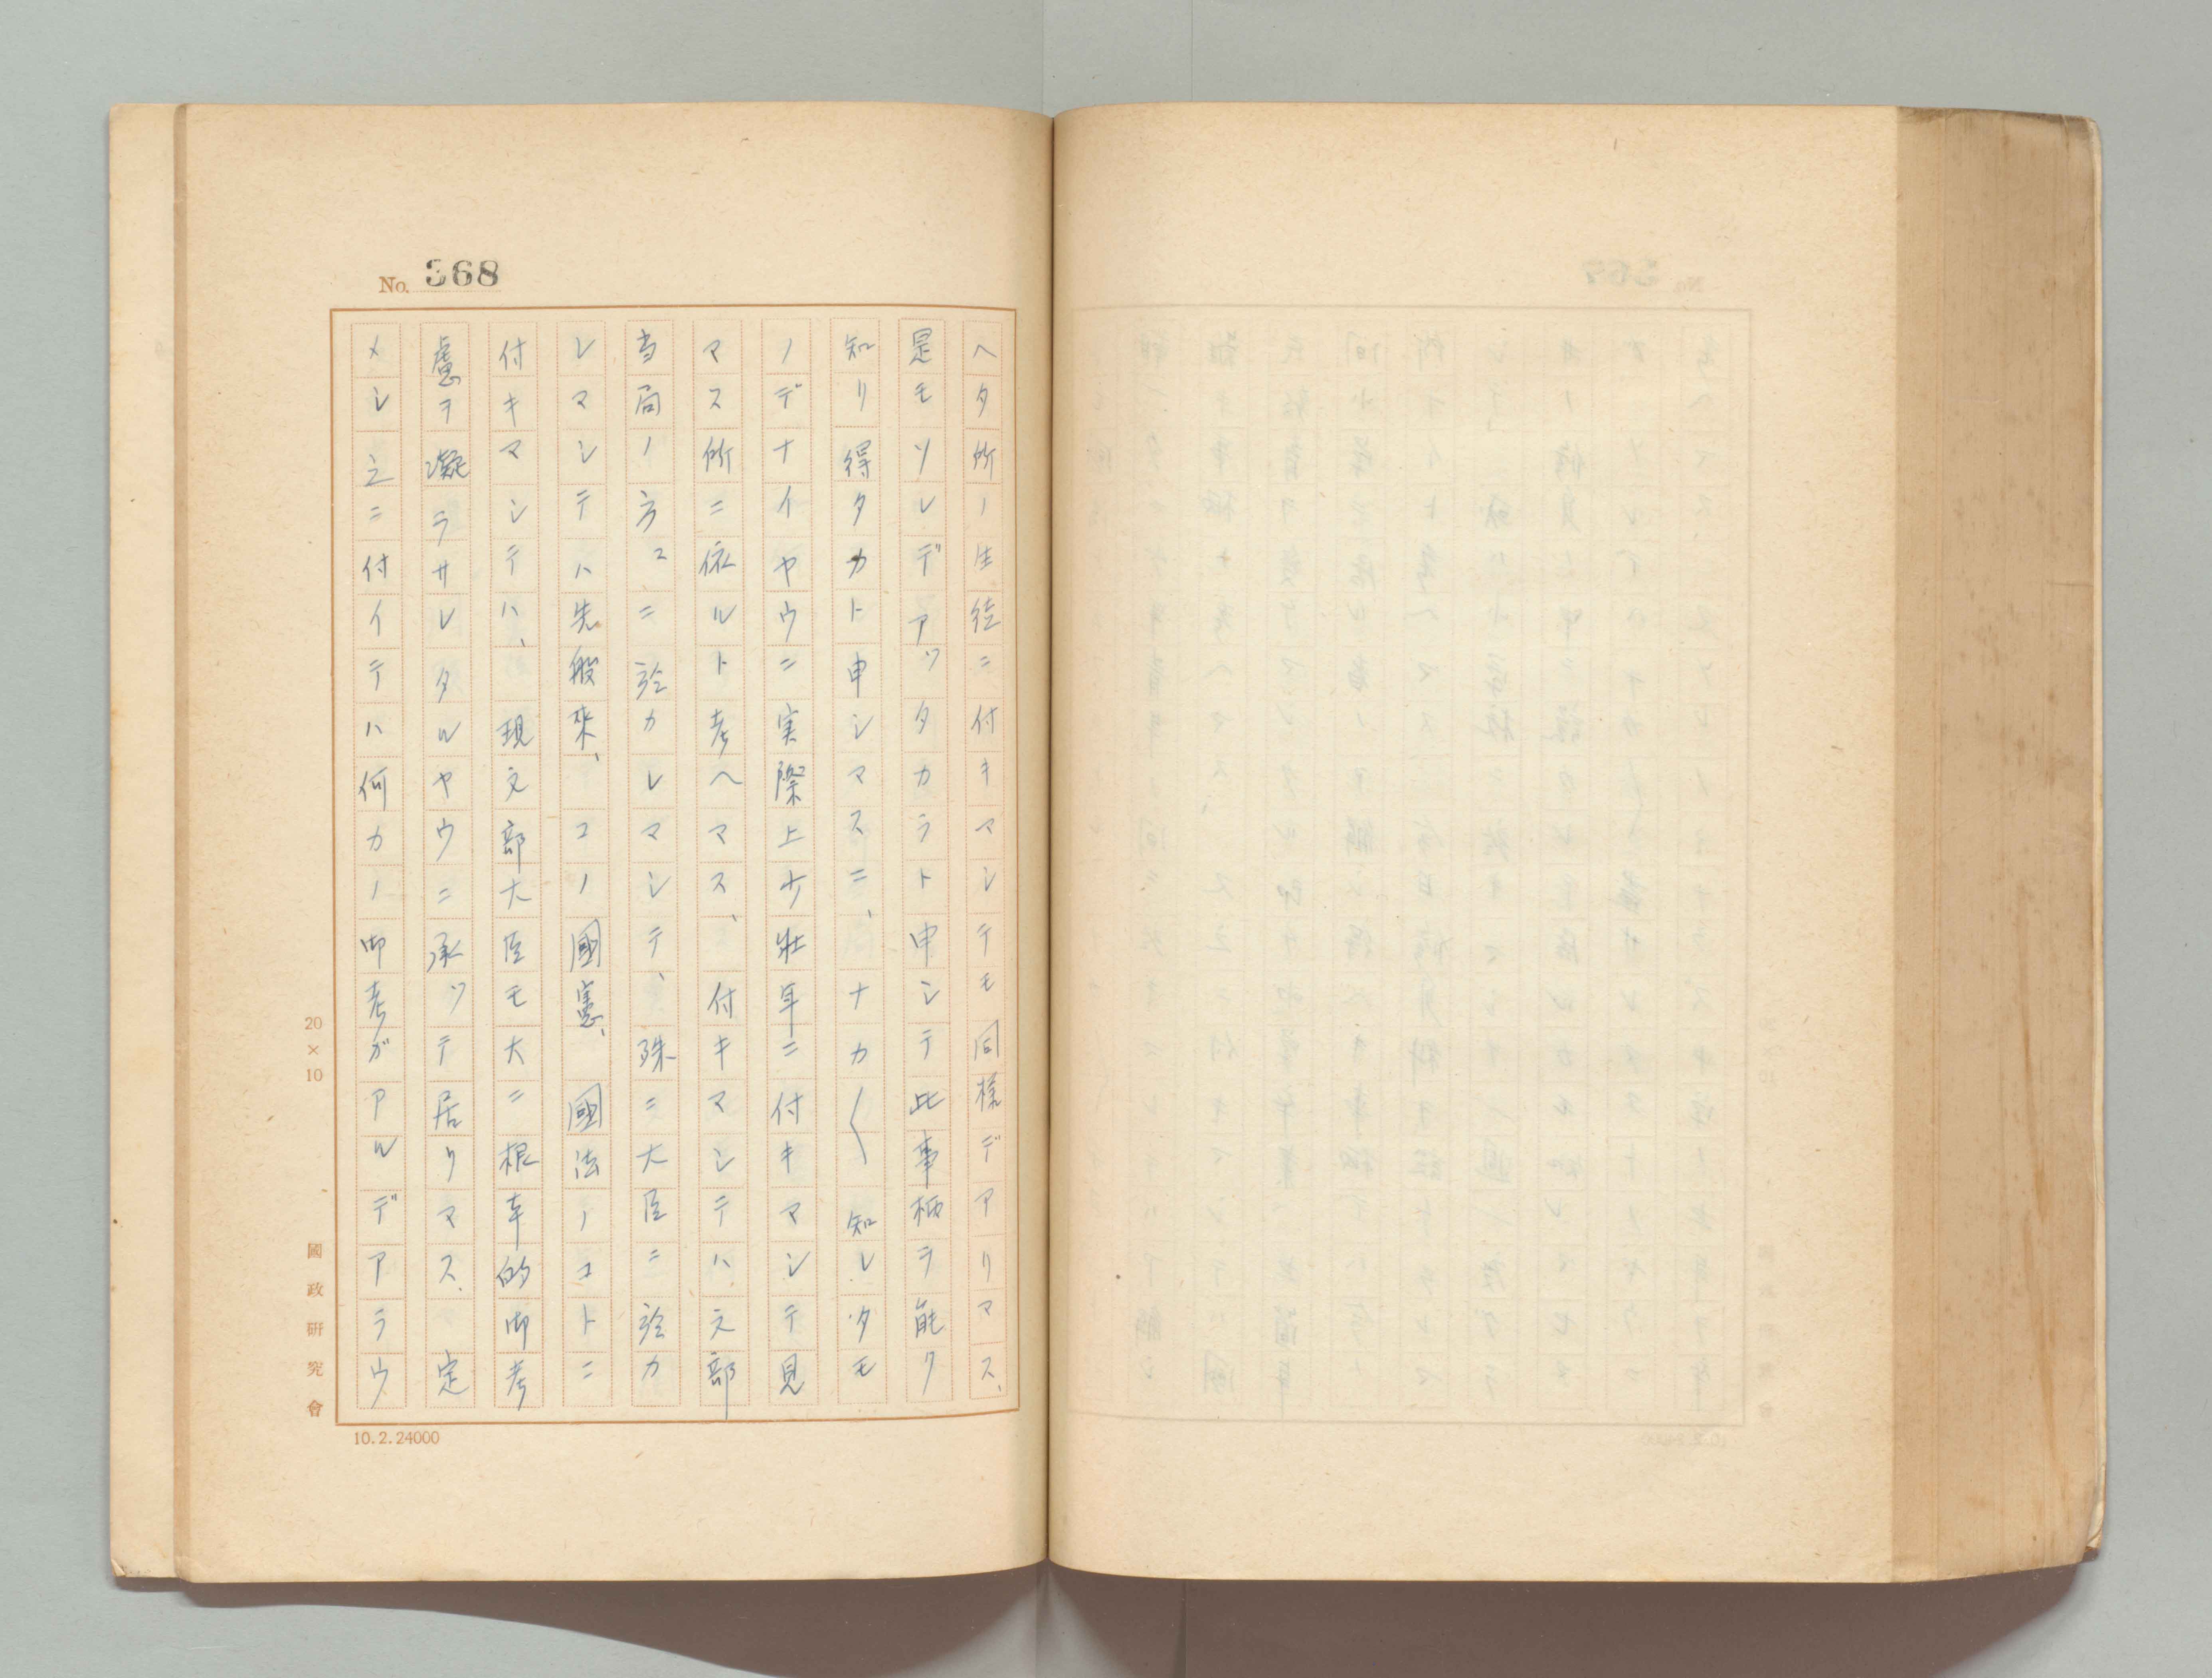 No. 368
ヘタ所ノ生徒ニ付キマシテモ同様デアリマス、
是モソレデアツタカラト申シテ此事柄ヲ能ク
知リ得タカト申シマスニ、ナカ〱知レタモ
ノデナイヤウニ実際上少壮年ニ付キマシテ見
マス所ニ依ルト考ヘマス、付キマシテハ文部
当局ノ方ニ於カレマシテ、殊ニ大臣ニ於カ
レマシテハ先般来、コノ國憲、國法ノコトニ
付キマシテハ、現文部大臣モ大ニ根本的御考
慮ヲ凝ラサレタルヤウニ承ツテ居リマス、定
メシ之ニ付イテハ何カノ御考ガアルデアラウ
20×10
國政研究會
10.2.24000